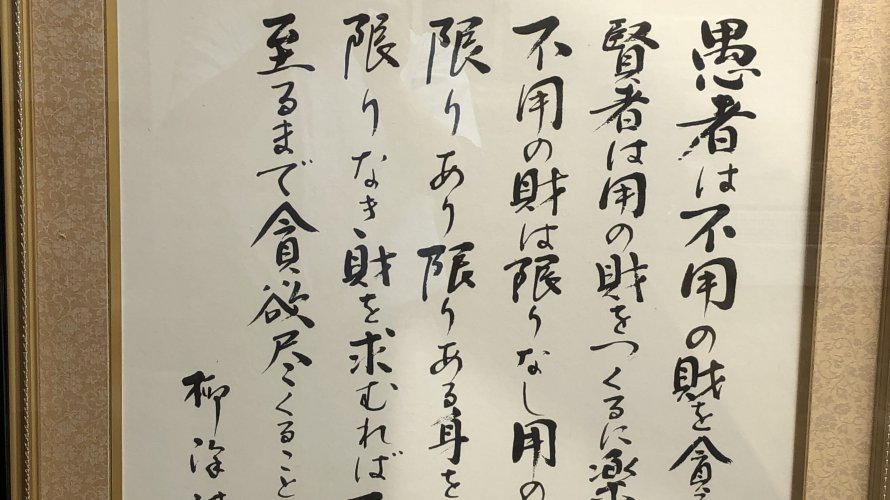 愚者は不用の財を貪る
賢者は用の財をつくるに楽
不用の財は限りなし用の
限りあり限りある身を
限りなき財を求むれば
至るまで貪欲尽くること
柳